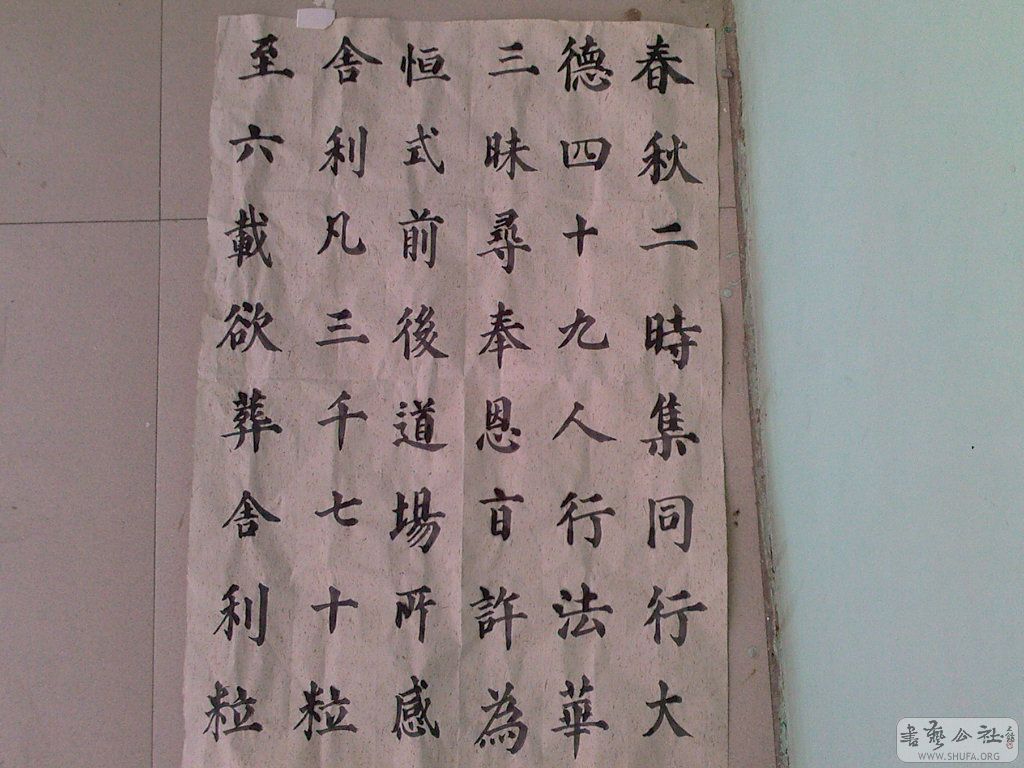 春秋二時集同行大
德四十九人行法華
三昧尋奉恩旨許為
恒式前後道場所感
舍利凡三千七十粒
至六載欲葬舍利粒
書藝公社
WWW.SHUFA.ORG